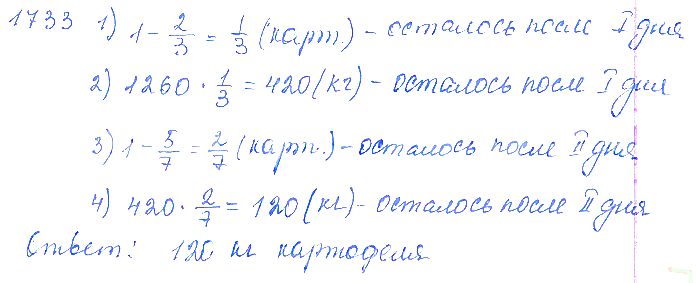 1733 1) 1 - 2/3 = 1/3 (карт.) - осталось после I дня
2) 1260 · 1/3 = 420 (кг) - осталось после I дня
3) 1 - 5/7 = 2/7 (карт.) - осталось после II дня
4) 420 · 2/7 = 120 (кг) - осталось после II дня
Ответ: 120 кг картофеля